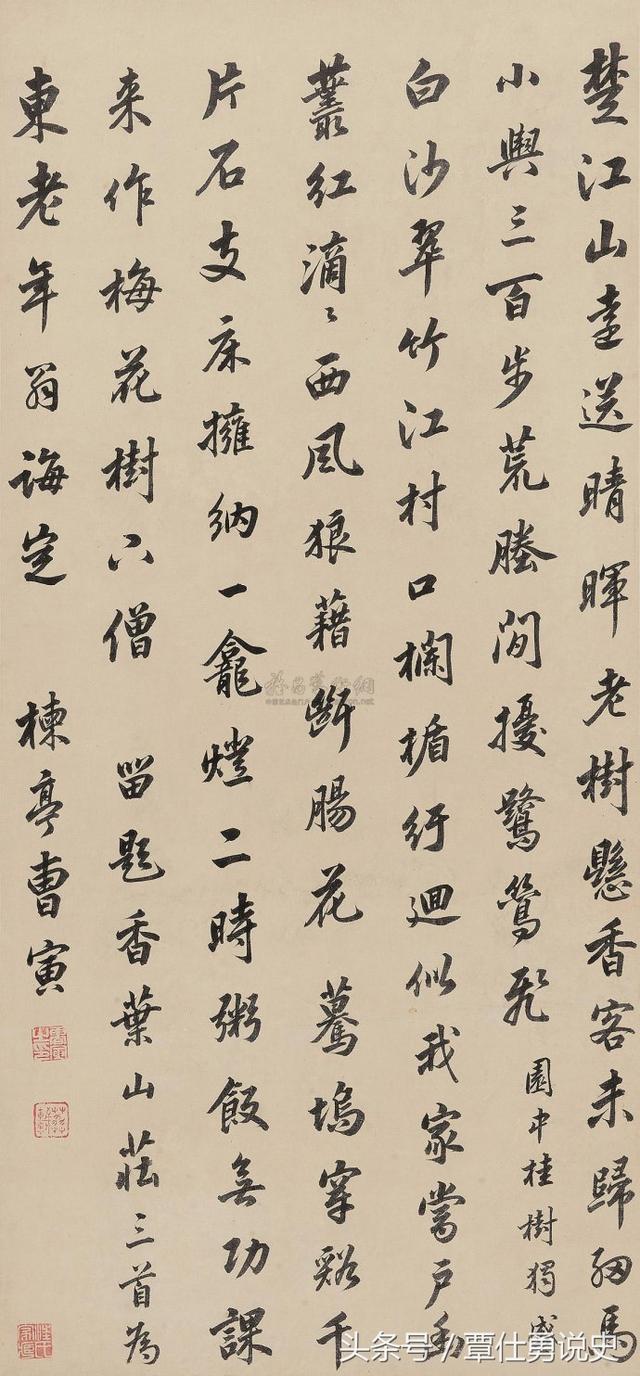 楚江山送晴暉老樹懸香客未歸細馬
小輿三百步荒塍間擾鷺鶿飛 園中桂樹獨盛
白沙翠竹江村口欄楯紆迴似我家當戶
叢紅滴〻西風狼藉斷腸花 驀塢穿谿千
片石支床擁納一龕燈二時粥飯無功課
来作梅花樹下僧 留題香葉山莊三首為
東老年翁誨定 楝亭曹寅
头条号/覃仕勇说史